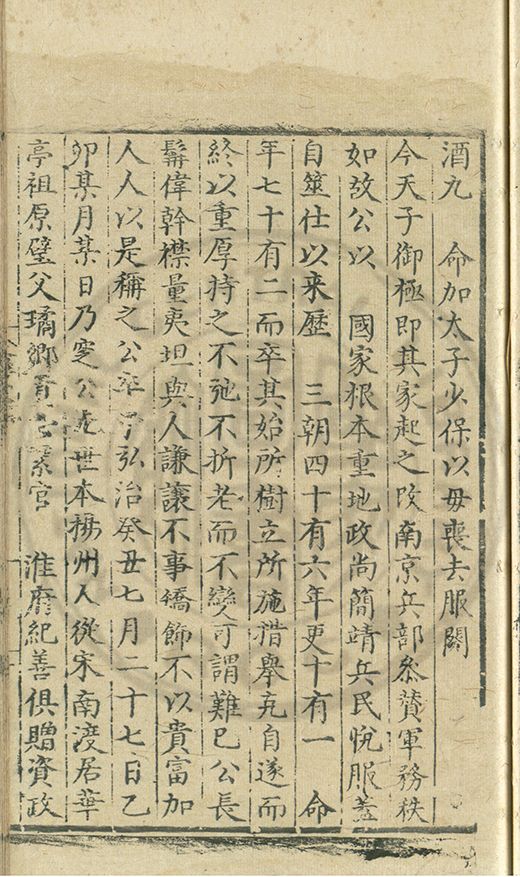 酒九　命加太子少保以毋喪去服闋
今天子御極即其家起之改南京兵部叅贊軍務秩
如故公以　國家根本重地政尚簡靖兵民悅服蓋
自筮仕以來歷　三朝四十有六年更十有一　命
年七十有二而卒其始所樹立所施措舉充自遂而
終以重厚持之不弛不折老而不變可謂難巳公長
髯偉幹襟量夷坦與人謙讓不事矯飾不以貴富加
人人以是稱之公卒于弘治癸丑七月二十七日乙
卯某月某日乃窆公先世本楊州人從宋南渡居華
亭祖原璧父璚鄉貢官　淮府紀善俱贈資政